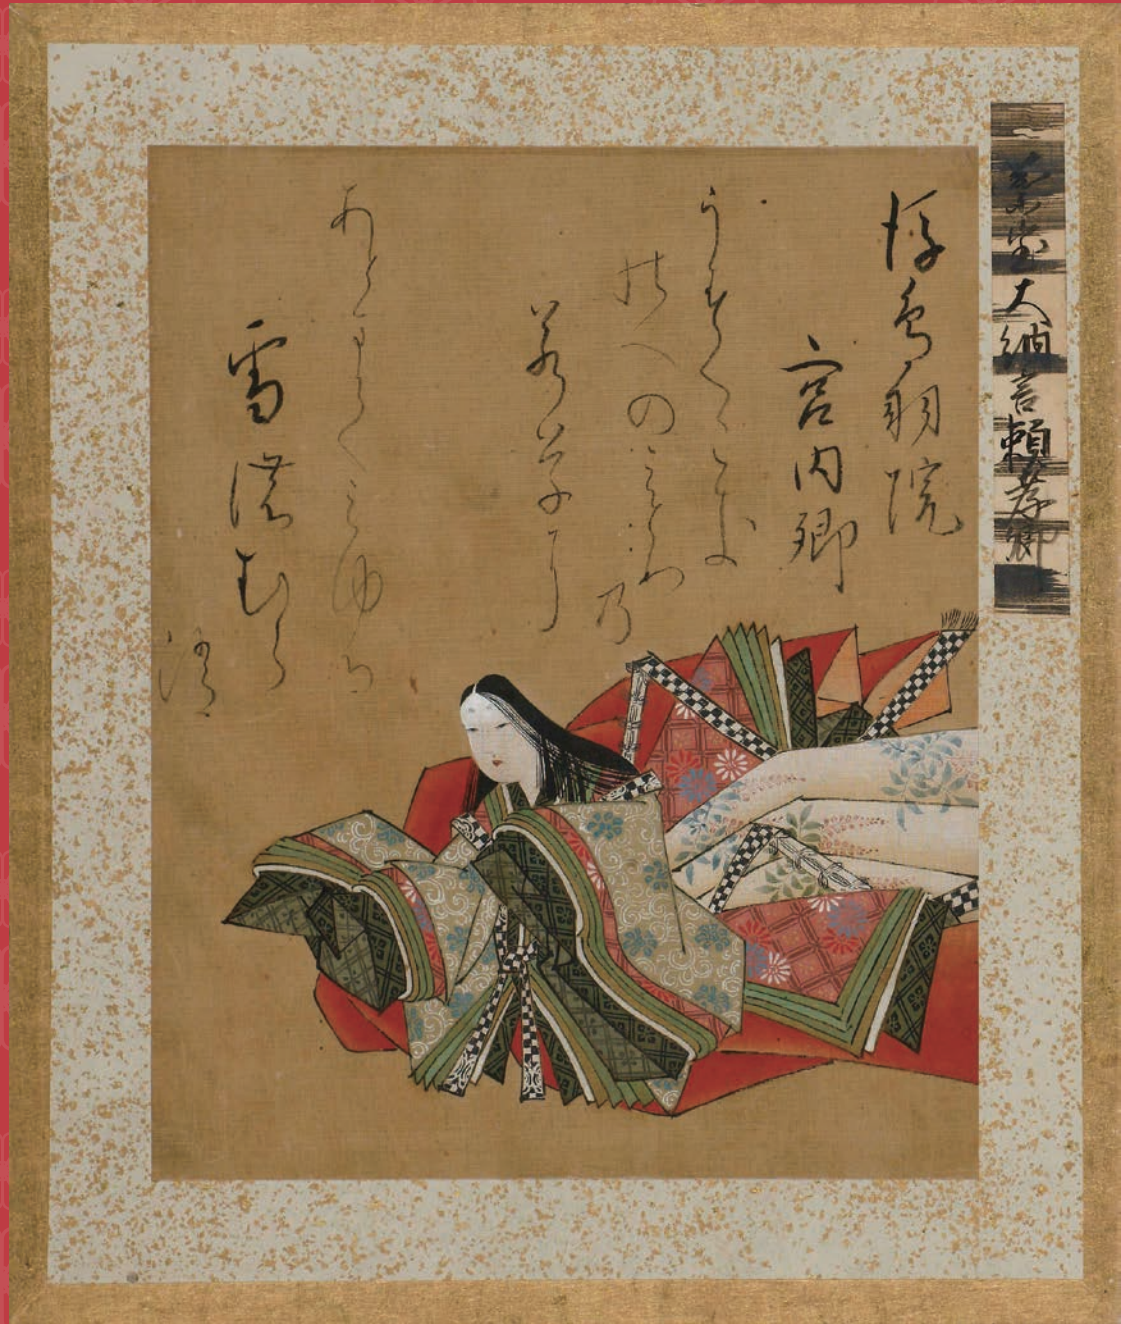 葉室大納言頼孝卿
後鳥羽院
宮内卿
うすくこき
のへのみとり
乃
若草に
あとまてみゆる
雪濃むら
消